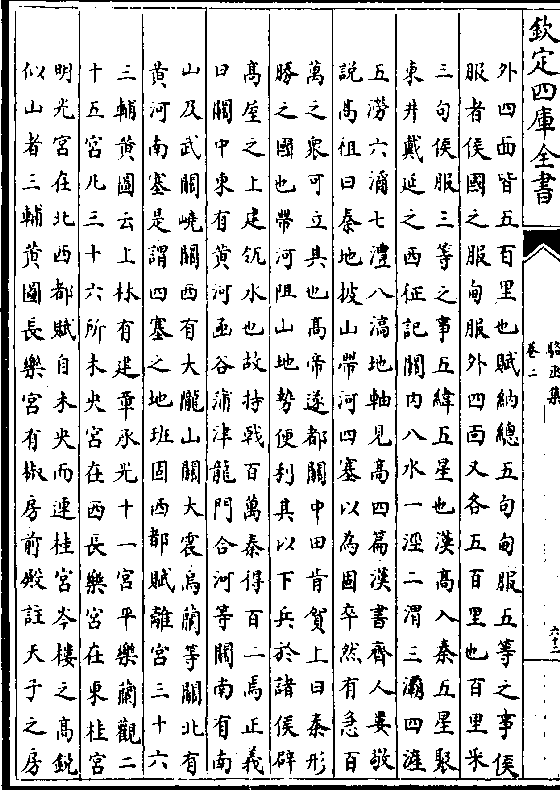 欽定四庫全書
卷二
外四面皆五百里也賦納總五句甸服五等之事侯
服者侯國之服甸服外四面又各五百里也百里采
三句侯服三等之事五緯五星也漢高入秦五星聚
東井戴延之西征記關内八水一涇二渭三灞四滻
五澇六潏七灃八滈地軸見高四篇漢書齊人婁敬
説高祖曰秦地披山帶河四塞以為固卒然有急百
萬之衆可立具也高帝遂都關中田肯賀上曰秦形
勝之國也帶河阻山地勢便利其以下兵於諸侯辟
高屋之上建瓴水也故持戟百萬秦得百二焉正義
曰關中東有黄河函谷蒲津龍門合河等關南有南
山及武關嶢關西有大隴山關大震烏蘭等關北有
黄河南塞是謂四塞之地班固西都賦離宫三十六
三輔黄圖云上林有建章承光十一宫平樂蘭觀二
十五宫凡三十六所未央宫在西長樂宫在東桂宫
明光宫在北西都賦自未央而連桂宫岑樓之高鋭
似山者三輔黄圖長樂宫有椒房前殿註天子之房